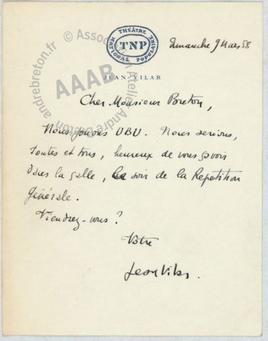 THÉÂTRE NATIONAL POPULAIRE
TNP
Dimanche 9 Mars 58
JEAN VILAR
Cher Monsieur Breton,
Nous jouons UBU. Nous serions,
toutes et tous, heureux de vous savoir
dans la salle, le soir de la Répétition
générale.
Viendrez-vous ?
Votre
Jean Vilar.
andrebreton.fr © Association Atelier André Breton
AAAB